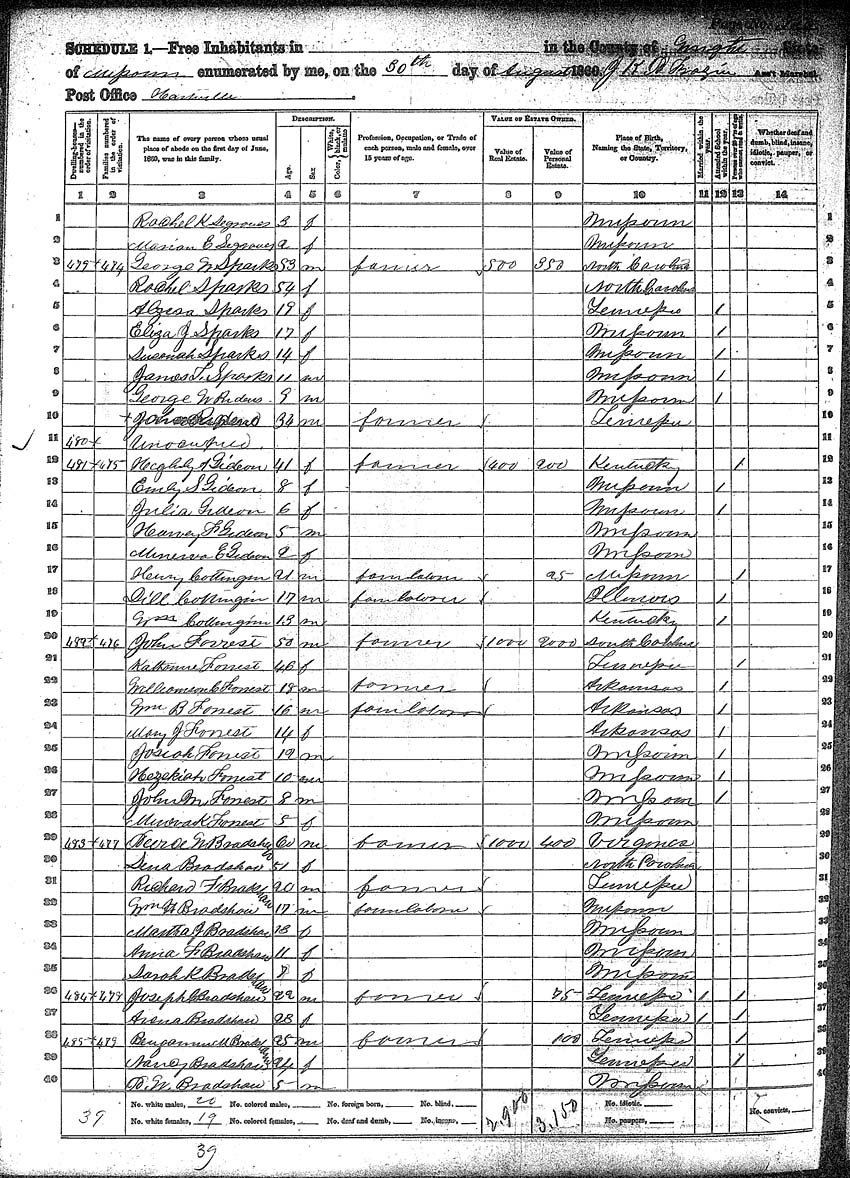 Page No.
SCHEDULE 1.—Free Inhabitants in in the County of State
of Missouri enumerated by me, on the 30th day of August 1860. Ass't Marshal.
Post Office Hartville.
Dwelling-houses—numbered in the order of visitation.
Families numbered in the order of visitation.
The name of every person whose usual place of abode on the first day of June, 1860, was in this family.
DESCRIPTION.
Age
Sex
Color, White, black, or mulatto
Profession, Occupation, or Trade of each person, male and female, over 15 years of age.
VALUE OF ESTATE OWNED.
Value of Real Estate.
Value of Personal Estate.
Place of Birth, Naming the State, Territory, or Country.
Married within the year.
Attended School within the year.
Whether deaf and dumb, blind, insane, idiotic, pauper, or convict.
1 2 3 4 5 6 7 8 9 10 11 12 13 14
1 Rachel K Segroves 3 f Missouri 1
2 Marian E Segroves 2 f Missouri 2
3 479 474 George W Sparks 53 m farmer 500 350 North Carolina 3
4 Rachel Sparks 54 f North Carolina 4
5 Sparks 19 f Tennessee 1 5
6 Eliza J Sparks 17 f Missouri 1 6
7 Susanah Sparks 14 f Missouri 1 7
8 James T Sparks 11 m Missouri 1 8
9 George W 9 m Missouri 1 9
10 34 m farmer Tennessee 10
11 480 Unocupied 11
12 481 475 Gideon 41 f farmer 400 200 Kentucky 1 12
13 Emily S Gideon 8 f Missouri 1 13
14 Julia Gideon 6 f Missouri 1 14
15 Harvey F Gideon 5 m Missouri 15
16 Minerva E Gideon 2 f Missouri 16
17 Henry Cottingin 21 m farm laborer 25 Missouri 1 17
18 Dill Cottingin 17 m farm laborer Illinois 1 18
19 Wm Cottingin 13 m Kentucky 1 19
20 482 476 John Forrest 50 m farmer 1000 2000 South Carolina 20
21 Katharine Forrest 46 f Tennessee 1 21
22 Williamson C Forrest 18 m farmer Arkansas 1 22
23 Wm B Forrest 16 m farm laborer Arkansas 1 23
24 Mary J Forrest 14 f Arkansas 1 24
25 Josiah Forrest 12 m Missouri 1 25
26 Hezekiah Forrest 10 m Missouri 1 26
27 John M Forrest 8 m Missouri 1 27
28 K Forrest 5 f Missouri 28
29 483 477 Bradshaw 60 m farmer 1000 400 Virginia 29
30 Bradshaw 51 f North Carolina 30
31 Richard F Bradshaw 20 m farmer Tennessee 31
32 Wm H Bradshaw 17 m farm laborer Missouri 32
33 Martha J Bradshaw 13 f Missouri 33
34 Anna F Bradshaw 11 f Missouri 34
35 Sarah K Bradshaw 7 f Missouri 35
36 484 478 Joseph C Bradshaw 22 m farmer 75 Tennessee 1 1 36
37 Bradshaw 28 f Tennessee 1 1 37
38 485 479 Bengamin M Bradshaw 25 m farmer 100 Tennessee 1 38
39 Nancy Bradshaw 24 f Tennessee 1 39
40 B. W. Bradshaw 5 m Missouri 40
39 No. white males, 20 No. colored males, No. foreign born, No. blind, 2,900 3,150 No. idiotic, No. convicts,
No. white females, 19 No. colored females, No. deaf and dumb, No. insane, No. paupers,
39